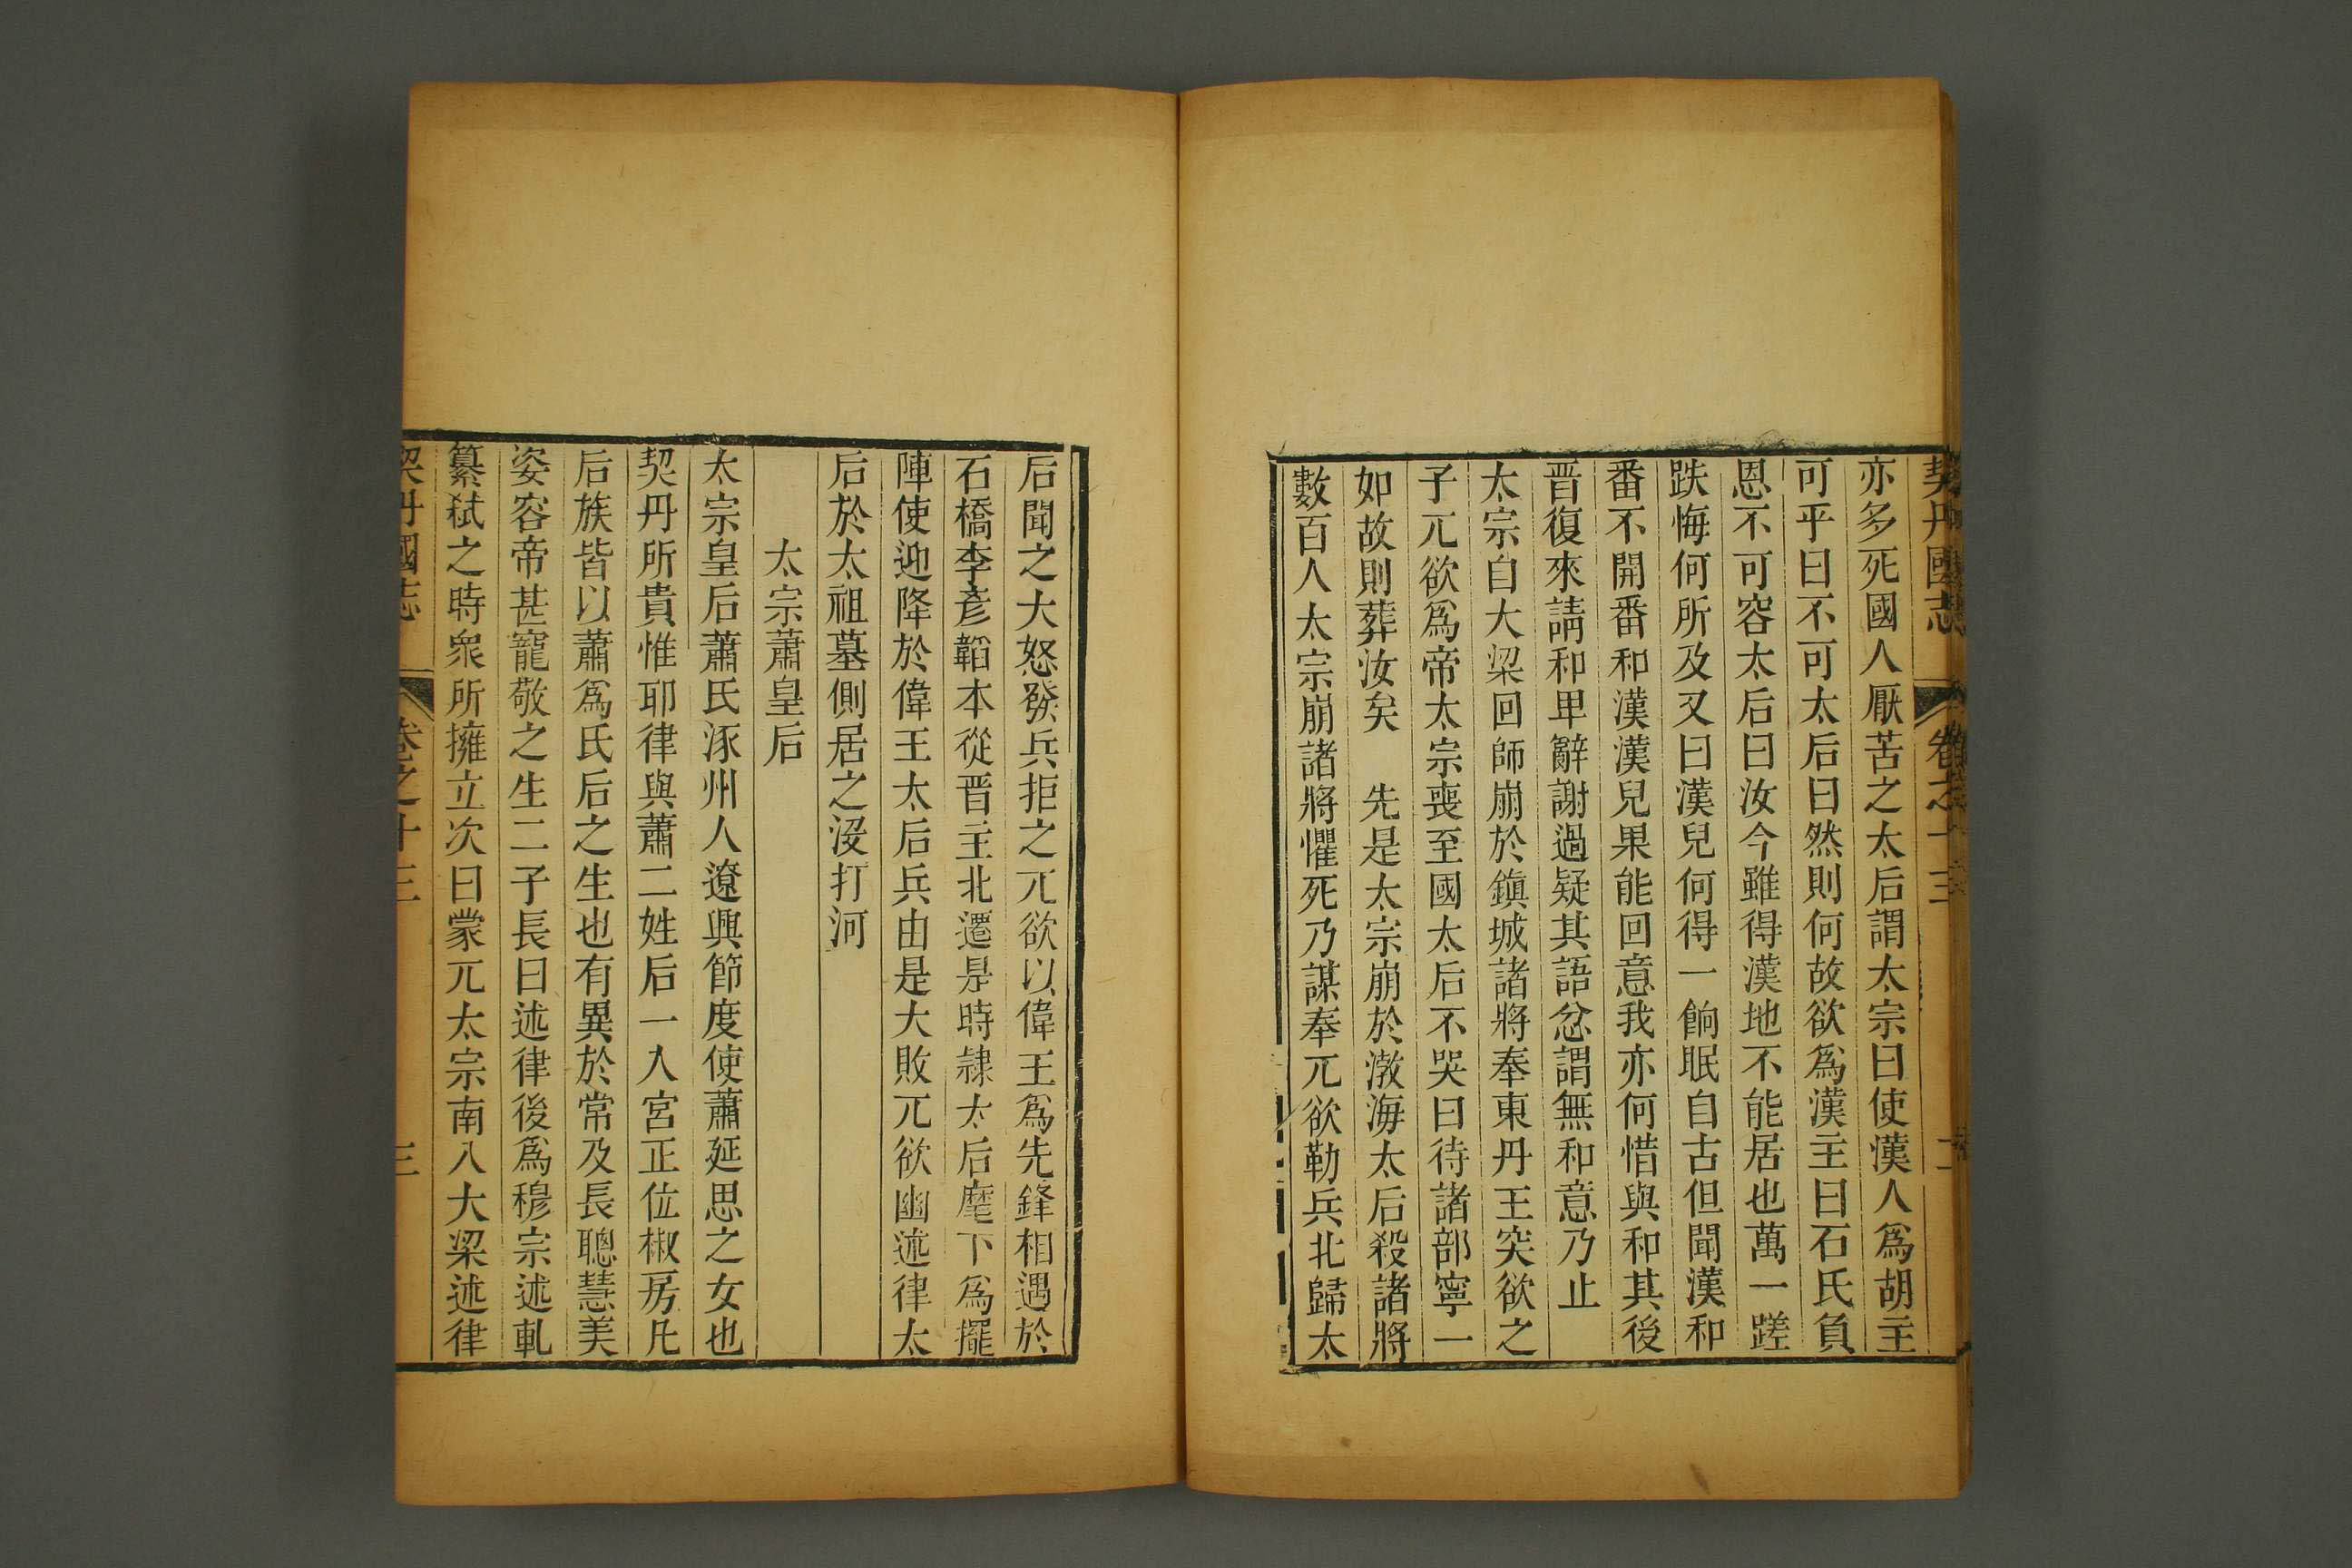 契丹國志 卷之十三 二
亦多死國人厭苦之太后謂太宗曰使漢人爲胡主
可乎曰不可太后曰然則何故欲爲漢主曰石氏負
恩不可容太后曰汝今雖得漢地不能居也萬一蹉
跌悔何所及又曰漢兒何得一餉眠自古但聞漢和
番不聞番和漢漢兒果能回意我亦何惜與和其後
晋復來請和卑辭謝過疑其語忿謂無和意乃止
太宗自大梁回師崩於鎮城諸將奉東丹王突欲之
子兀欲爲帝太宗喪至國太后不哭曰待諸部寧一
如故則葬汝矣 先是太宗崩於渤海太后殺諸將
數百人太宗崩諸將懼死乃謀奉兀欲勒兵北歸太
后聞之大怒發兵拒之兀欲以偉王爲先鋒相遇於
石橋李彥韜本從晋主北遷是時隷太后麾下爲擺
陣使迎降於偉王太后兵由是大敗兀欲幽述律太
后於太祖墓側居之沒打河
太宗蕭皇后
太宗皇后蕭氏涿州人遼興節度使蕭延思之女也
契丹所貴惟耶律與蕭二姓后一入宮正位椒房凡
后族皆以蕭爲氏后之生也有異於常及長聰慧美
姿容帝甚寵敬之生二子長曰述律後爲穆宗述軋
纂弒之時衆所擁立次曰蒙兀太宗南入大梁述律
契丹國志 卷之十三 三